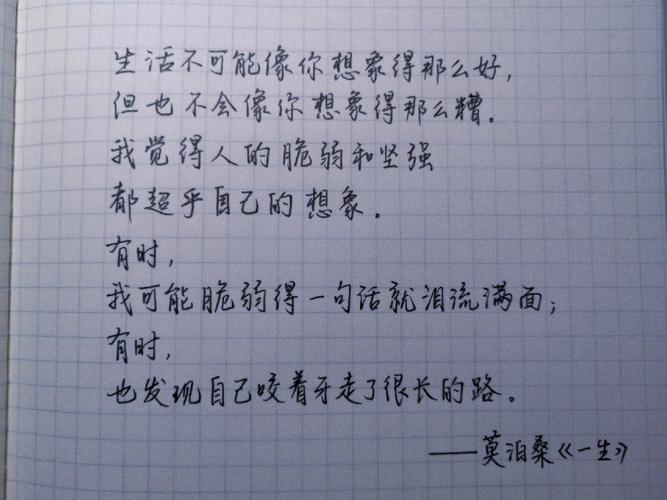 生活不可能像你想象得那么好，
但也不会像你想象得那么糟。
我觉得人的脆弱和坚强
都超乎自己的想象。
有时，
我可能脆弱得一句话就泪流满面；
有时，
也发现自己咬着牙走了很长的路。
——莫泊桑《一生》